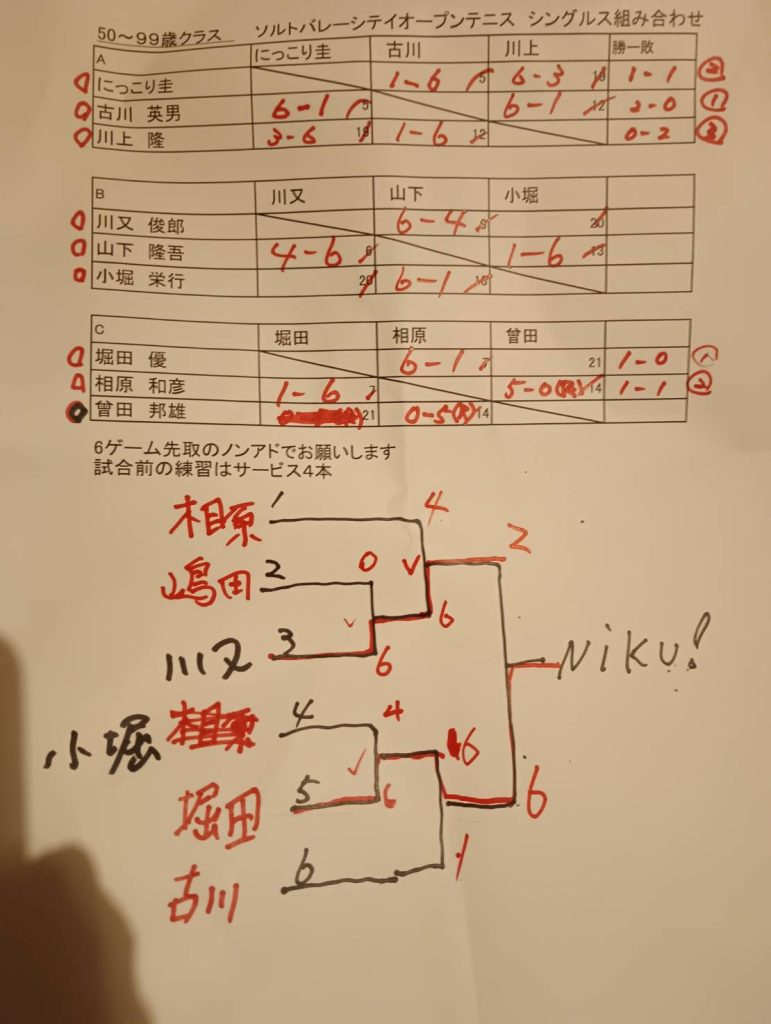 50～99歳クラス ソルトバレーシテイオープンテニス シングルス組み合わせ
A にっこり圭 古川 川上 勝一敗
にっこり圭 1-6 5 6-3 1-1 ②
古川 英男 6-1 5 6-1 12 2-0 ①
川上 隆 3-6 1-6 12 0-2 ③
B 川又 山下 小堀
川又 俊郎 6-4 20
山下 隆吾 4-6 6 1-6 13
小堀 栄行 20 6-1
C 堀田 相原 曾田
堀田 優 6-1 7 21 1-0 ①
相原 和彦 1-6 7 5-0 14 1-1 ②
曾田 邦雄 21 0-5 14
6ゲーム先取のノンアドでお願いします
試合前の練習はサービス4本
相原 1 4
2
嶋田 2 0
6
川又 3 6
NiKU!
小堀 4 4
6
堀田 5 6
6
古川 6 1